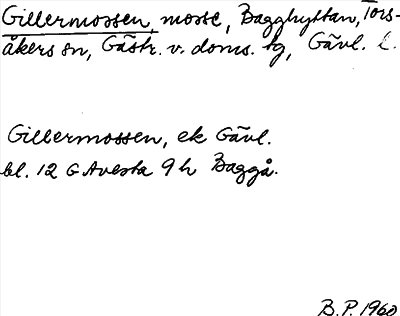 Gillermossen, mosse, Bagghyttan, Tors-
åkers sn, Gästr. v. doms. tg, Gävl. l.
Gillermossen, ek Gävl.
bl. 12 G Avesta 9 h Baggå.
B.P. 1960